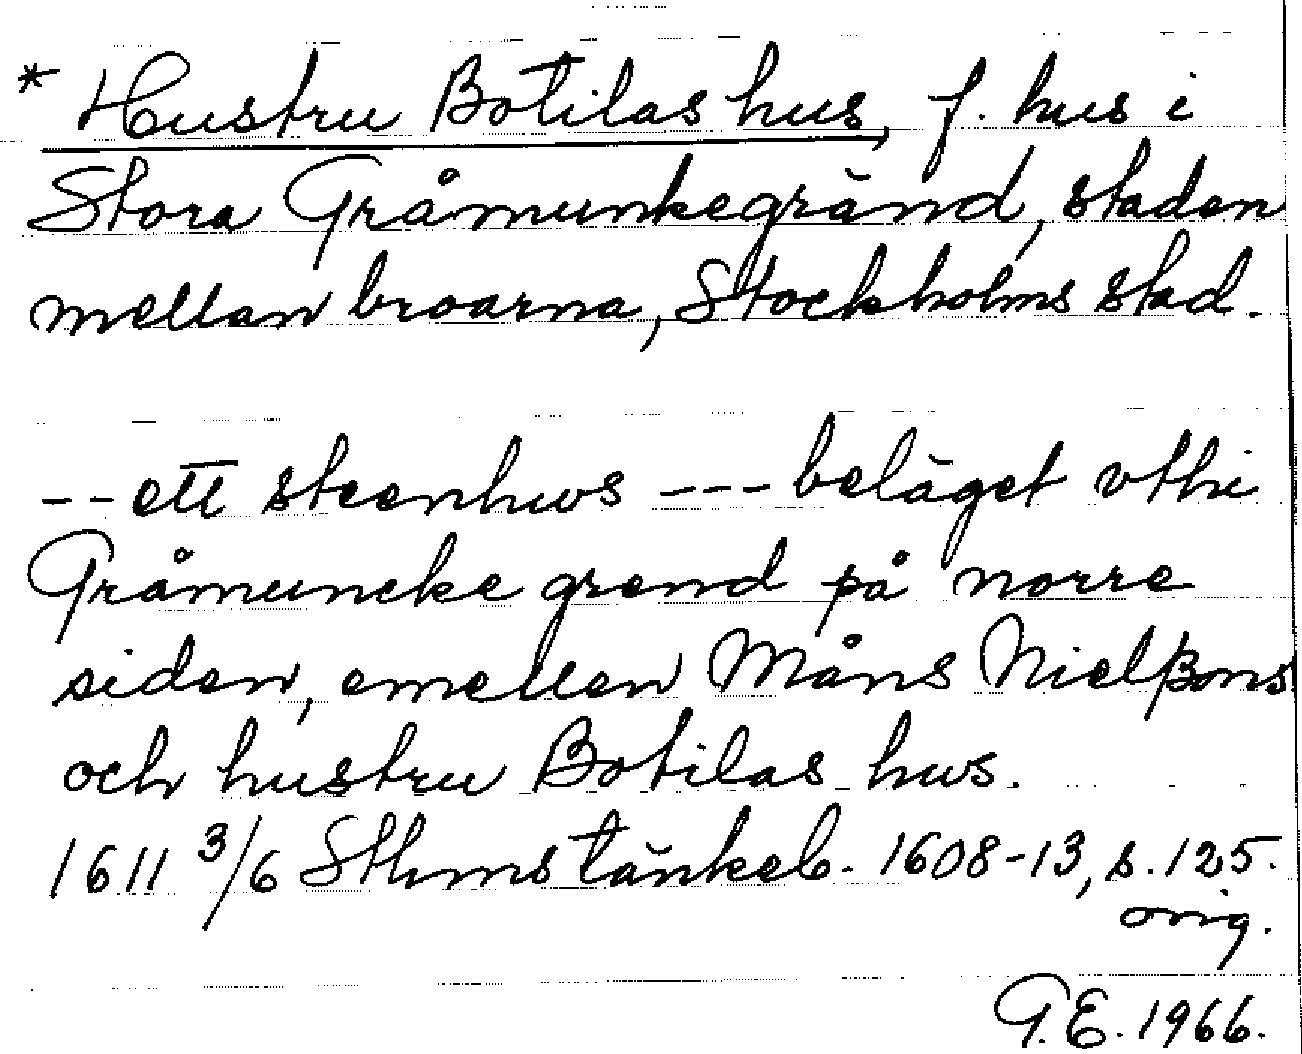 * Hustru Botilas hus, f. hus i
Stora Gråmunkegränd, staden
mellan broarna, Stockholms stad.
-- ett steenhws --- beläget vthi
Gråmuncke grend på norre
siden, emellen Måns Nielßons
och hustru Botilas hws.
1611 3/6 Sthms tänkeb. 1608-13, s. 125.
orig.
G.E. 1966.